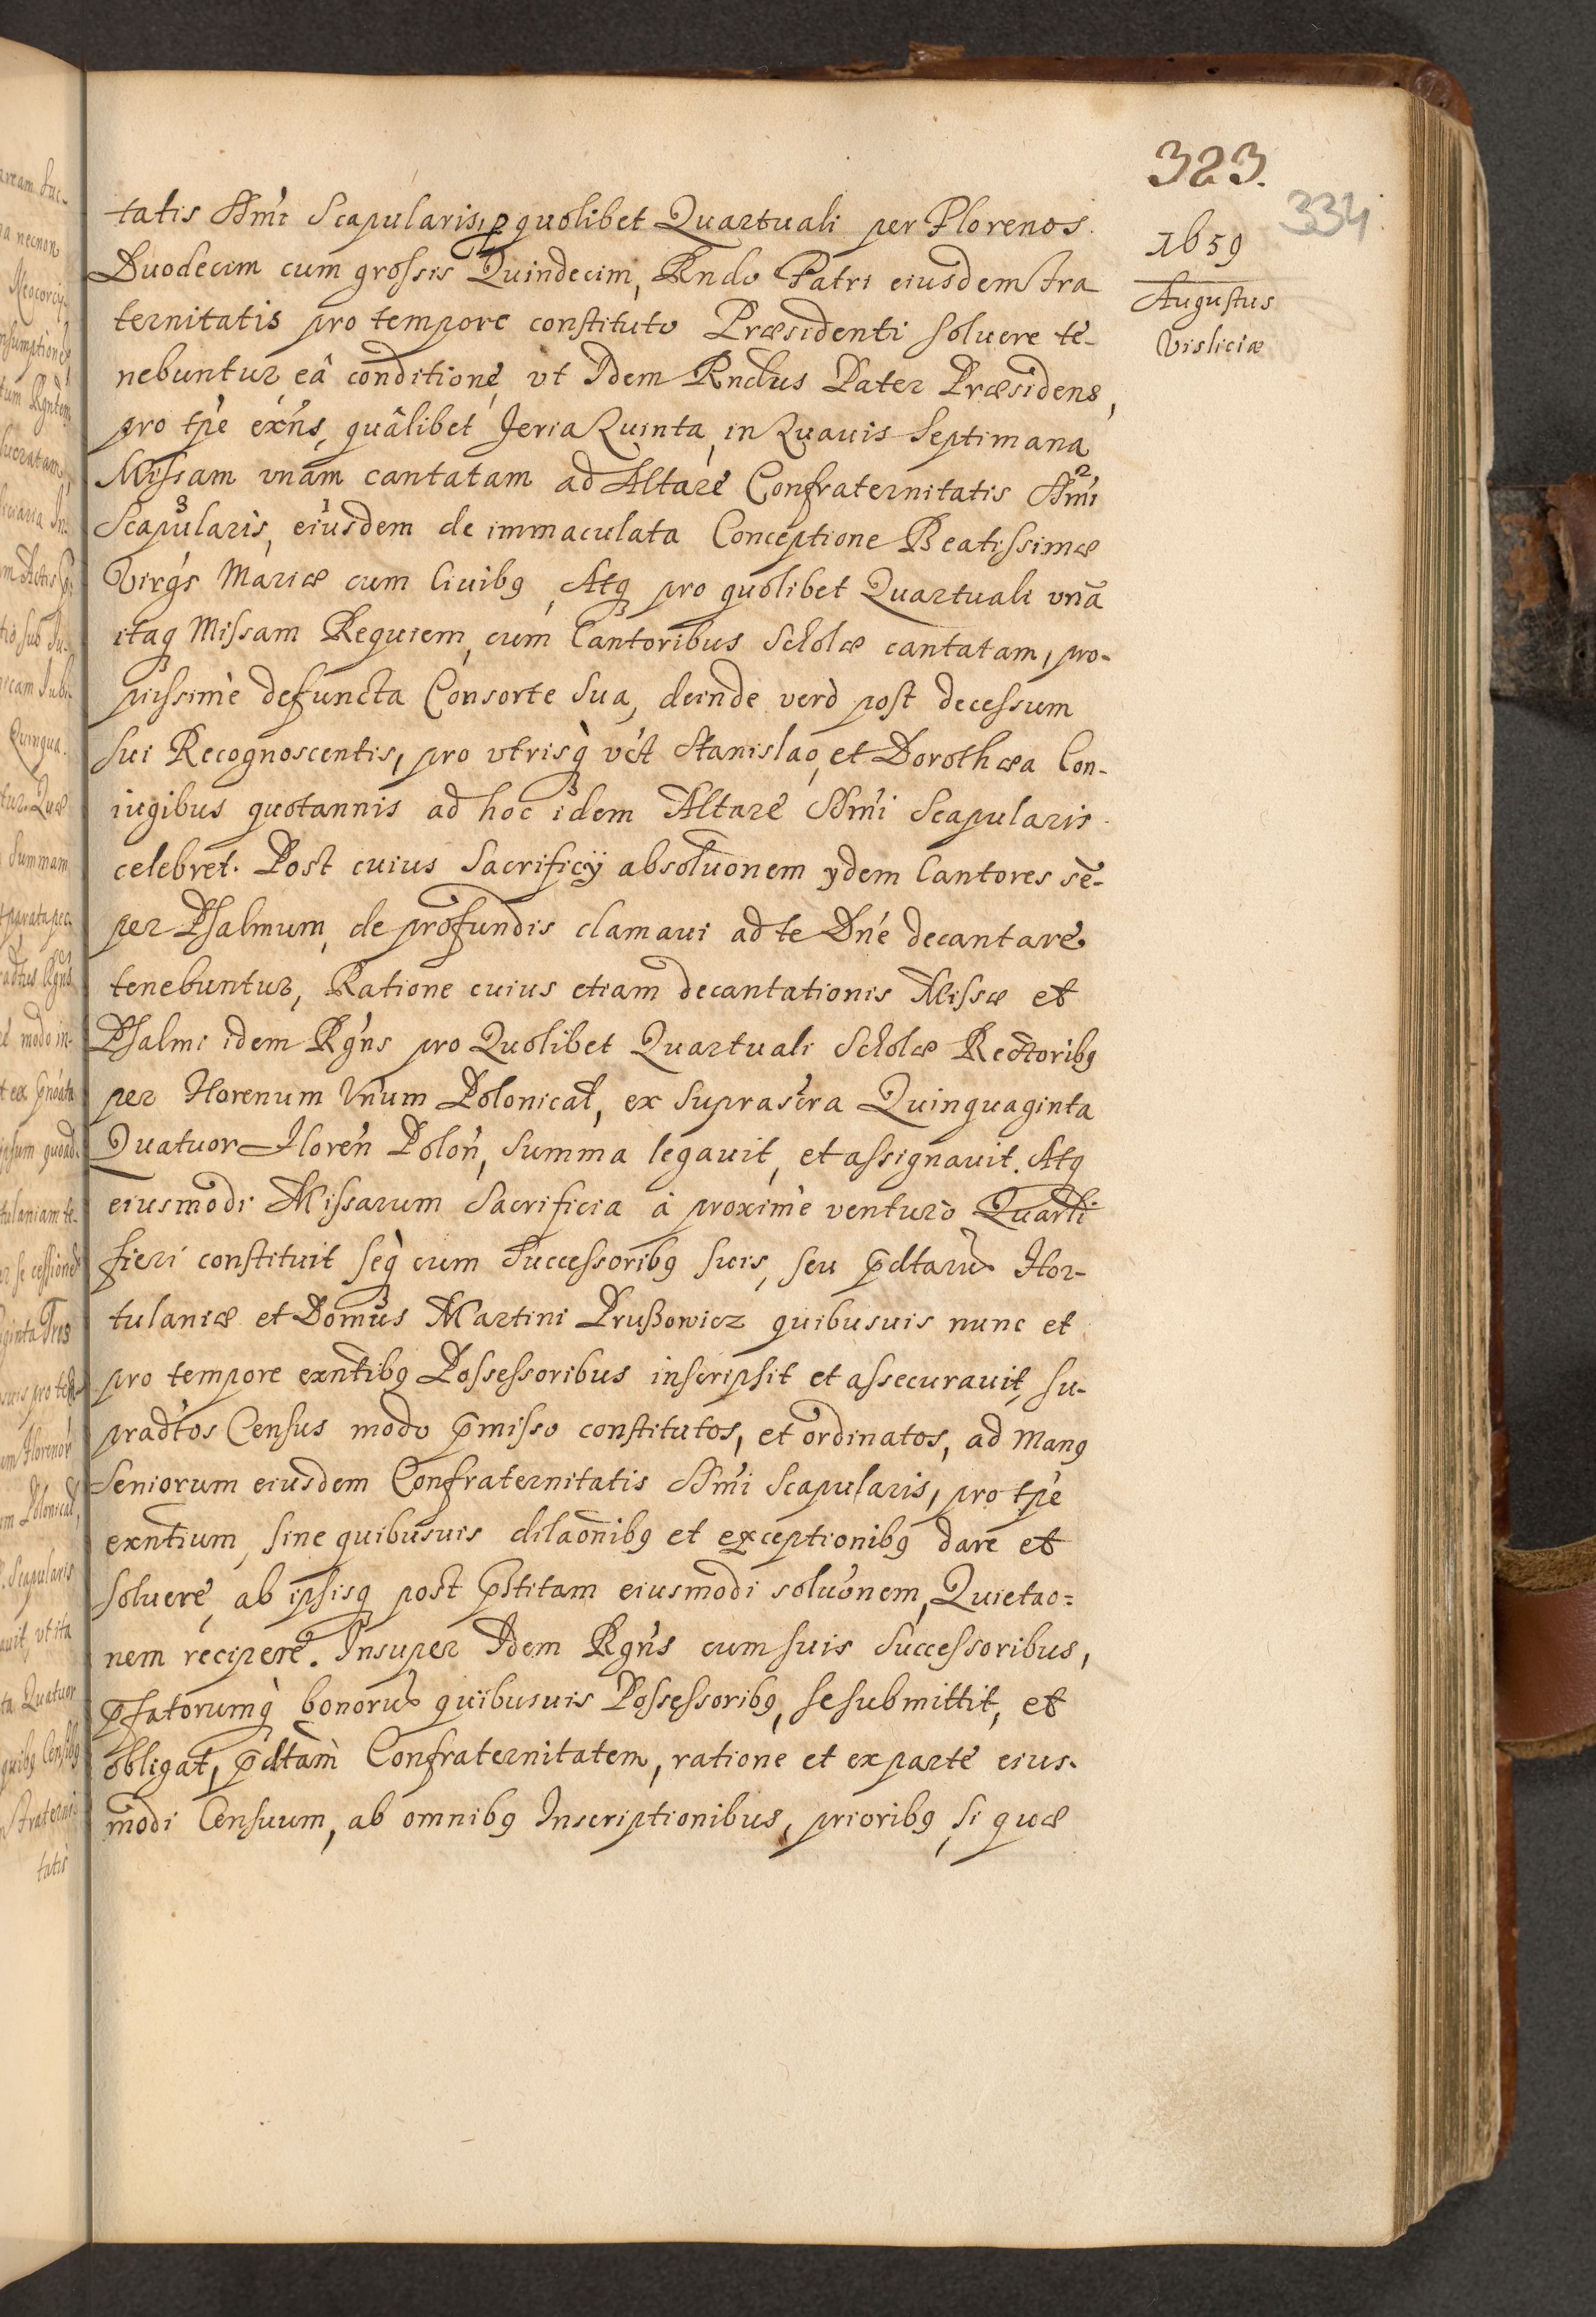 323.
334
1659
Augustus
Visliciæ
tatis SSmi Scapularis, ꝓ quolibet Quartuali per Florenos
Duodecim cum grossis Quindecim, Rndo Patri eiusdem Fra
ternitatis pro tempore constituto Præsidenti soluere te-
nebuntur, eâ conditione, vt Idem Rndus Pater Præsidens,
pro tpe exns, quâlibet Feria Quinta, in Quauis Septimana
Missam vnam cantatam ad Altare Confraternitatis SSmi
Scapularis, eiusdem de immaculata Conceptione Beatissimæ
Virgs Mariæ cum Ciuibꝰ, Atqꝫ pro quolibet Quartuali vnā
itaqꝫ Missam Requiem, cum Cantoribus Scholæ cantatam, pro
piissimè defuncta Consorte sua, deinde verò post decessum
sui Recognoscentis, pro vtrisqꝫ vct Stanislao, et Dorothæa Con-
iugibus quotannis ad hoc idem Altare SSmi Scapularis
celebret. Post cuius Sacrificÿ absoluonem ÿdem Cantores sē-
per Psalmum, de profundis clamaui ad te Dne decantare
tenebuntur, Ratione cuius etiam decantationis Missæ et
Psalmi idem Rgns pro Quolibet Quartuali Scholæ Rectoribꝰ
per Florenum Vnum Polonical, ex suprascra Quinquaginta
Quatuor Floren Polon, summa legauit, et assignauit. Atqꝫ
eiusmodi Missarum Sacrificia à proximè venturo Quartli
fieri constituit seqꝫ cum Successoribꝰ suis, seu p̄dtarū Hor-
tulaniæ et Domus Martini Prußowicz quibusuis nunc et
pro tempore exntibꝰ Possessoribus inscripsit et assecurauit, su-
pradtos Census modo p̄misso constitutos, et ordinatos, ad Manꝰ
Seniorum eiusdem Confraternitatis SSmi Scapularis, pro tpe
exntium, sine quibusuis dilaonibꝰ et exceptionibꝰ dare et
soluere, ab ipsisqꝫ post p̄stitam eiusmodi soluonem, Quietao=
nem recipere. Insuper Idem Rgns cum suis Successoribus,
p̄fatorumqꝫ bonorū quibusuis Possessoribꝰ, se submittit, et
obligat, p̄dtam Confraternitatem, ratione et ex parte eius-
modi Censuum, ab omnibꝰ Inscriptionibus, prioribꝰ, si quæ